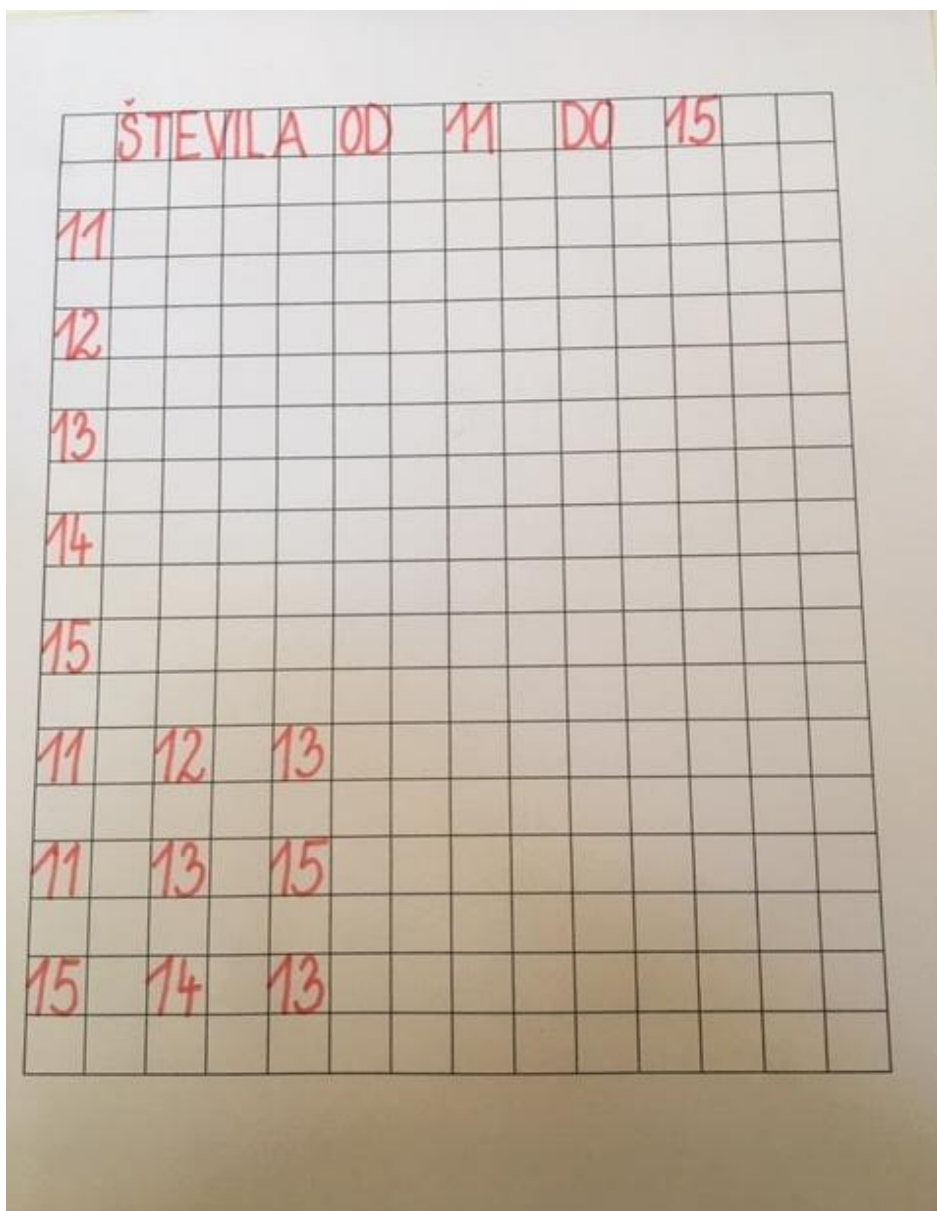 ŠTEVILA OD 11 DO 15
11
12
13
14
15
11 12 13
11 13 15
15 14 13